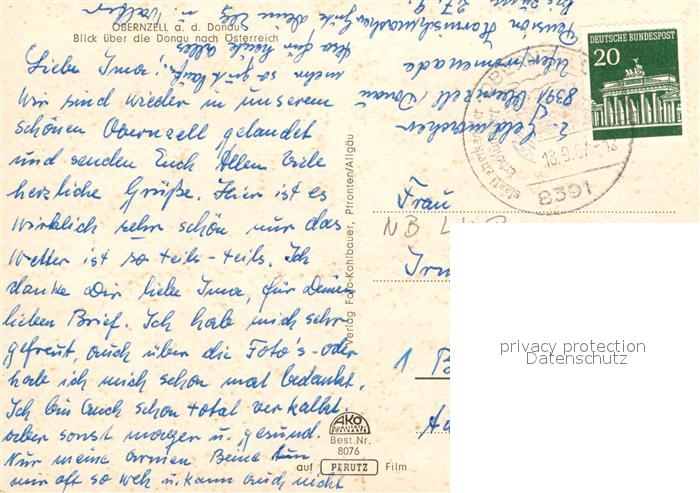 OBERNZELL a. d. Donau
Blick über die Donau nach Österreich
Liebe Irma!
Wir sind wieder in unserem
schönen Obernzell gelandet
und senden Euch Allen viele
herzliche Grüße. Hier ist es
wirklich sehr schön nur das
Wetter ist so teils-teils. Ich
danke Dir liebe Irma, für Deinen
lieben Brief. Ich hab mich sehr
gefreut, auch über die Foto's - oder
hab ich mich schon mal bedankt.
Ich bin auch schon total verkalkt.
aber sonst mager u. gesund.
Nur meine armen Beine tun
mir oft so weh u. kann auch nicht
mehr so gut
Also für heute alles
Gute Deine u. Walter
Pension
Uferpromenade
8391 Obernzell / Donau
Verlag Foto-Kohlbauer, Pfronten/Allgäu
AKO
Best.Nr.
8076
auf PERUTZ Film
DEUTSCHE BUNDESPOST
20
18.9.67-18
8391
Frau
NB
1
privacy protection
Datenschutz